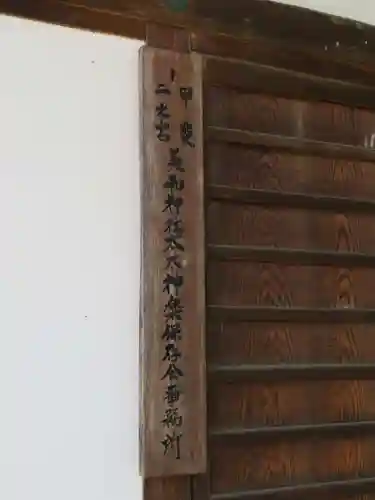 甲斐
二之宮
美和神社太々神楽保存会事務所